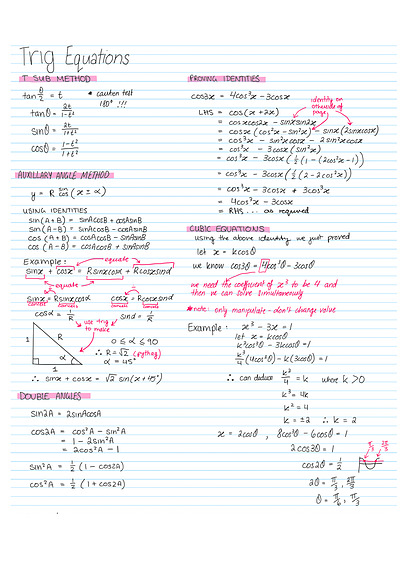 Trig Equations
T SUB METHOD
tan θ/2 = t
* caution test 180° !!!
tanθ = 2t/1-t²
sinθ = 2t/1+t²
cosθ = 1-t²/1+t²
AUXILLARY ANGLE METHOD
y = R sin/cos (x ± α)
USING IDENTITIES
sin (A+B) = sinAcosB + cosAsinB
sin (A-B) = sinAcosB - cosAsinB
cos (A+B) = cosAcosB - sinAsinB
cos (A-B) = cosAcosB + sinAsinB
Example:
equate
sinx + cosx = Rsinxcosα + Rcosxsinα
equate
sinx = Rsinxcosα
cosx = Rcosxsinα
cancels cancels cancels cancels
cosα = 1/R
sinα = 1/R
use trig to make
1
R
α
1
0 ≤ α ≤ 90
∴ R = √2 (pythag)
α = 45°
∴ sinx + cosx = √2 sin(x+45°)
DOUBLE ANGLES
sin2A = 2sinAcosA
cos2A = cos²A - sin²A
= 1 - 2sin²A
= 2cos²A - 1
sin²A = 1/2 (1 - cos2A)
cos²A = 1/2 (1 + cos2A)
PROVING IDENTITIES
cos3x = 4cos³x - 3cosx
identity on otherside of page
LHS = cos(x+2x)
= cosxcos2x - sinxsin2x
= cosx (cos²x - sin²x) - sinx(2sinxcosx)
= cos³x - sin²xcosx - 2sin²xcosx
= cos³x - 3cosx(sin²x)
= cos³x - 3cosx (1/2 (1-(2cos²x-1))
= cos³x - 3cosx (1/2 (2-2cos²x))
= cos³x - 3cosx + 3cos³x
= 4cos³x - 3cosx
= RHS ... as required
CUBIC EQUATIONS
using the above identity we just proved
let x = kcosθ
we know cos3θ = 4cos³θ - 3cosθ
we need the coefficient of x³ to be 4 and
then we can solve simultaneously
*note: only manipulate - don't change value
Example: x³ - 3x = 1
let x = kcosθ
k³cos³θ - 3kcosθ = 1
k³/4 (4cos³θ) - k(3cosθ) = 1
∴ can deduce k³/4 = k where k > 0
k³ = 4k
k² = 4
k = ±2 ∴ k = 2
x = 2cosθ , 8cos³θ - 6cosθ = 1
2cos3θ = 1
cos2θ = 1/2
2θ = π/3, 5π/3
θ = π/6, π/3